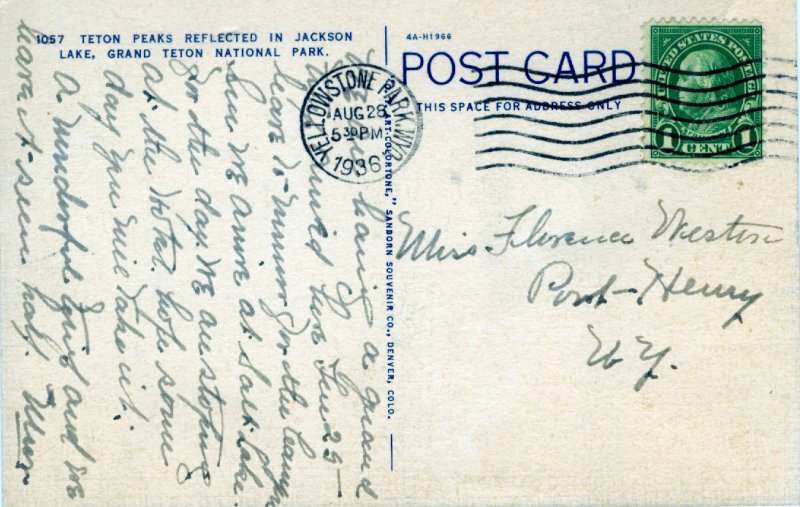 1057 TETON PEAKS REFLECTED IN JACKSON
LAKE, GRAND TETON NATIONAL PARK.
4A-H1966
POST CARD
THIS SPACE FOR ADDRESS ONLY
UNITED STATES POSTAGE
1 CENT 1
YELLOWSTONE PARK, WYO.
AUG 28
530 PM
1936
"C.T. ART-COLORTONE," SANBORN SOUVENIR CO., DENVER, COLO.
Miss Florence Weston
Port-Henry
N.Y.
having a grand
here Tues 25 –
leave to-morrow for the
we arrive at Salt Lake.
for the day we are stoping
at the Hotel. hope some
day you will take it.
a wonderful trip and we
havent seen half.